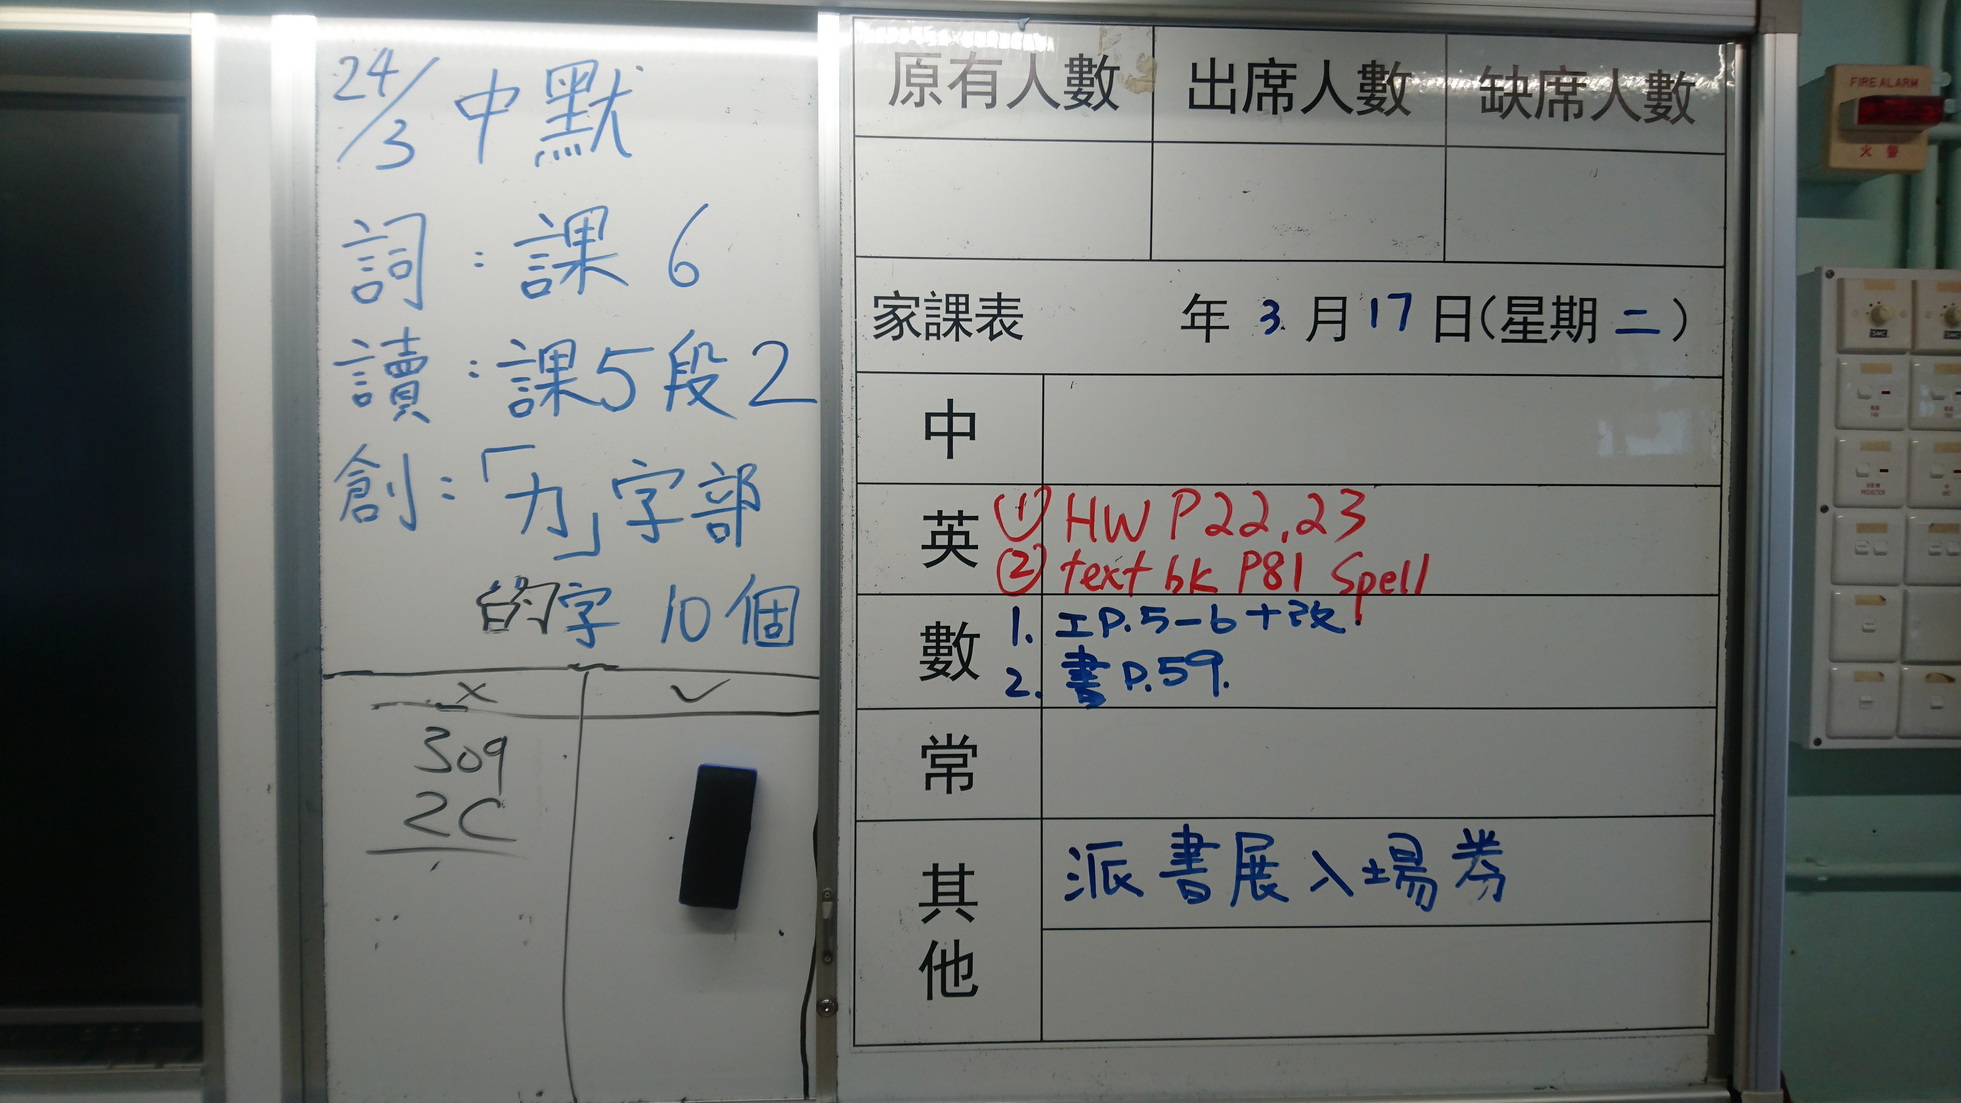 24/3 中默
詞：課 6
讀：課5段2
創：「力」字部
的字 10個
× ✓
309
2C
原有人數 出席人數 缺席人數
家課表 年 3 月 17 日(星期 二 )
中
英 ① HW P22,23
② text bk P81 Spell
數 1. 工P.5-6+改.
2. 書 P.59.
常
其他 派書展入場券
FIRE ALARM
火警